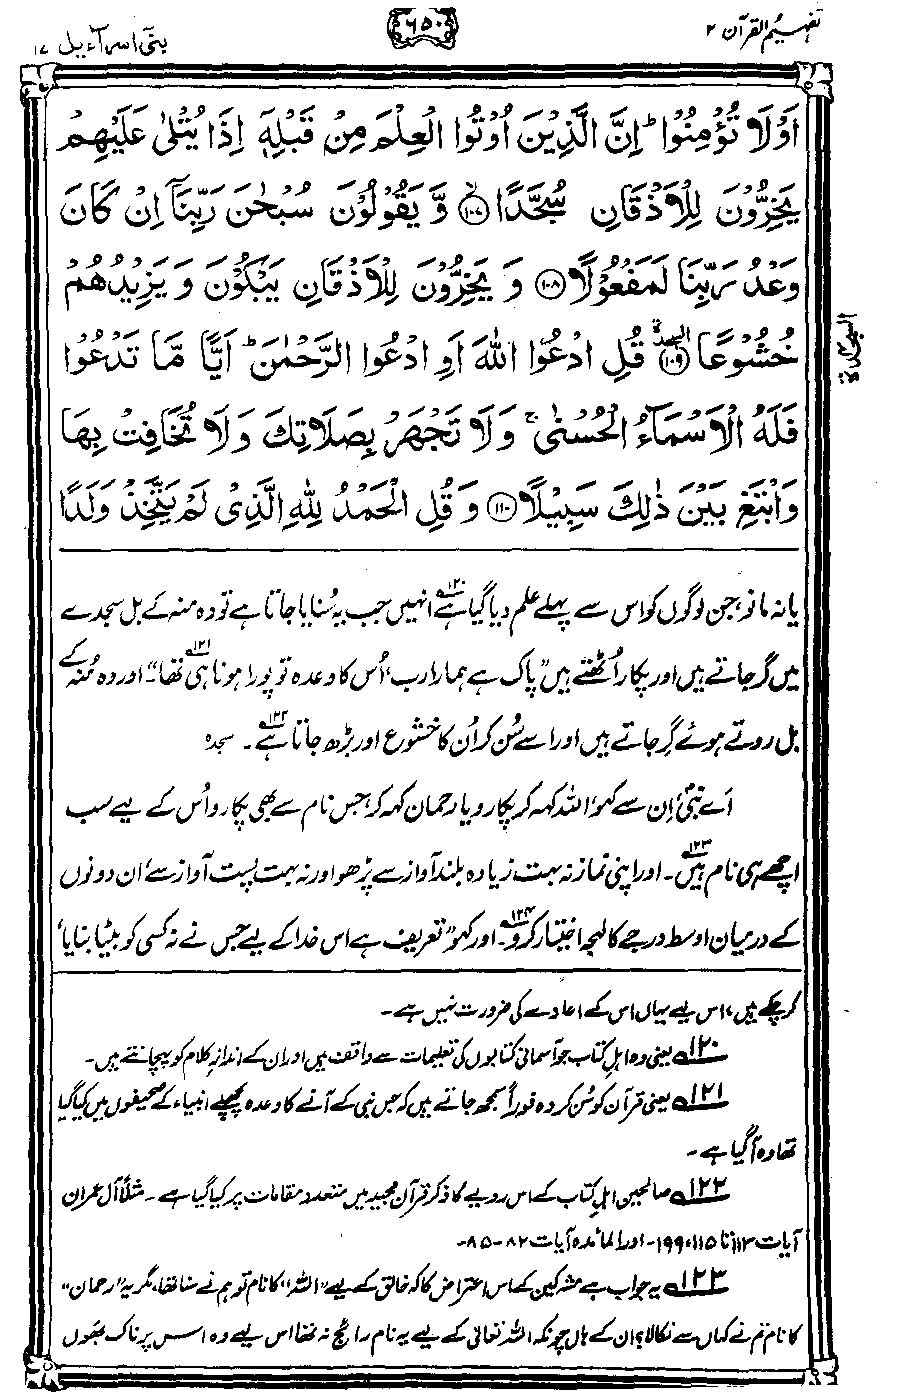 تفہیم القرآن ۲
۶۵۰
بنی اسرآءیل ۱۷
اَوْ لَا تُؤْمِنُوْا ؕ اِنَّ الَّذِيْنَ اُوْتُوا الْعِلْمَ مِنْ قَبْلِهٖۤ اِذَا يُتْلٰى عَلَيْهِمْ
يَخِرُّوْنَ لِلْاَذْقَانِ سُجَّدًا ۙ﴿۱۰۷﴾ وَّ يَقُوْلُوْنَ سُبْحٰنَ رَبِّنَاۤ اِنْ كَانَ
وَعْدُ رَبِّنَا لَمَفْعُوْلًا ﴿۱۰۸﴾ وَ يَخِرُّوْنَ لِلْاَذْقَانِ يَبْكُوْنَ وَ يَزِيْدُهُمْ
خُشُوْعًا ﴿۱۰۹﴾ السجدة قُلِ ادْعُوا اللّٰهَ اَوِ ادْعُوا الرَّحْمٰنَ ؕ اَيًّا مَّا تَدْعُوْا
السجدة
فَلَهُ الْاَسْمَآءُ الْحُسْنٰى ۚ وَ لَا تَجْهَرْ بِصَلَاتِكَ وَ لَا تُخَافِتْ بِهَا
وَ ابْتَغِ بَيْنَ ذٰلِكَ سَبِيْلًا ﴿۱۱۰﴾ وَ قُلِ الْحَمْدُ لِلّٰهِ الَّذِيْ لَمْ يَتَّخِذْ وَلَدًا
یا نہ مانو، جن لوگوں کو اس سے پہلے علم دیا گیا ہے۱۲۰ انہیں جب یہ سُنایا جاتا ہے تو وہ منہ کے بل سجدے
میں گر جاتے ہیں اور پکار اُٹھتے ہیں ”پاک ہے ہمارا رب، اُس کا وعدہ تو پورا ہونا ہی تھا“۱۲۱۔ اور وہ مُنہ کے
بل روتے ہوئے گر جاتے ہیں اور اسے سُن کر اُن کا خشوع اور بڑھ جاتا ہے۱۲۲۔ سجدہ
اَے نبیؐ، اِن سے کہو، اللہ کہہ کر پکارو یا رحمان کہہ کر، جس نام سے بھی پکارو اُس کے لیے سب
اچھے ہی نام ہیں۱۲۳۔ اور اپنی نماز نہ بہت زیادہ بلند آواز سے پڑھو اور نہ بہت پست آواز سے، ان دونوں
کے درمیان اوسط درجے کا لہجہ اختیار کرو۱۲۴۔ اور کہو ”تعریف ہے اس خدا کے لیے جس نے نہ کسی کو بیٹا بنایا،
کر چکے ہیں، اس لیے یہاں اس کے اعادے کی ضرورت نہیں ہے۔
۱۲۰ یعنی وہ اہلِ کتاب جو آسمانی کتابوں کی تعلیمات سے واقف ہیں اور ان کے اندازِ کلام کو پہچانتے ہیں۔
۱۲۱ یعنی قرآن کو سُن کر وہ فوراً سمجھ جاتے ہیں کہ جس نبی کے آنے کا وعدہ پچھلے انبیاء کے صحیفوں میں کیا گیا
تھا وہ آ گیا ہے۔
۱۲۲ صالحین اہلِ کتاب کے اس رویے کا ذکر قرآن مجید میں متعدد مقامات پر کیا گیا ہے۔ مثلاً آل عمران
آیات ۱۱۳ تا ۱۱۵، ۱۹۹۔ اور المائدہ آیات ۸۲-۸۵۔
۱۲۳ یہ جواب ہے مشرکین کے اس اعتراض کا کہ خالق کے لیے ”اللہ“ کا نام تو ہم نے سنا تھا، مگر یہ ”رحمان“
کا نام تم نے کہاں سے نکالا؟ ان کے ہاں چونکہ اللہ تعالیٰ کے لیے یہ نام رائج نہ تھا اس لیے وہ اس پر ناک بھوں